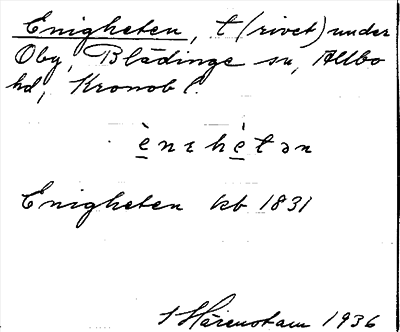 Enigheten, t (rivet) under
Oby, Blädinge sn, Allbo
hd, Kronob l.
ènɛhètən
Enigheten kb 1831
Härenstam 1936